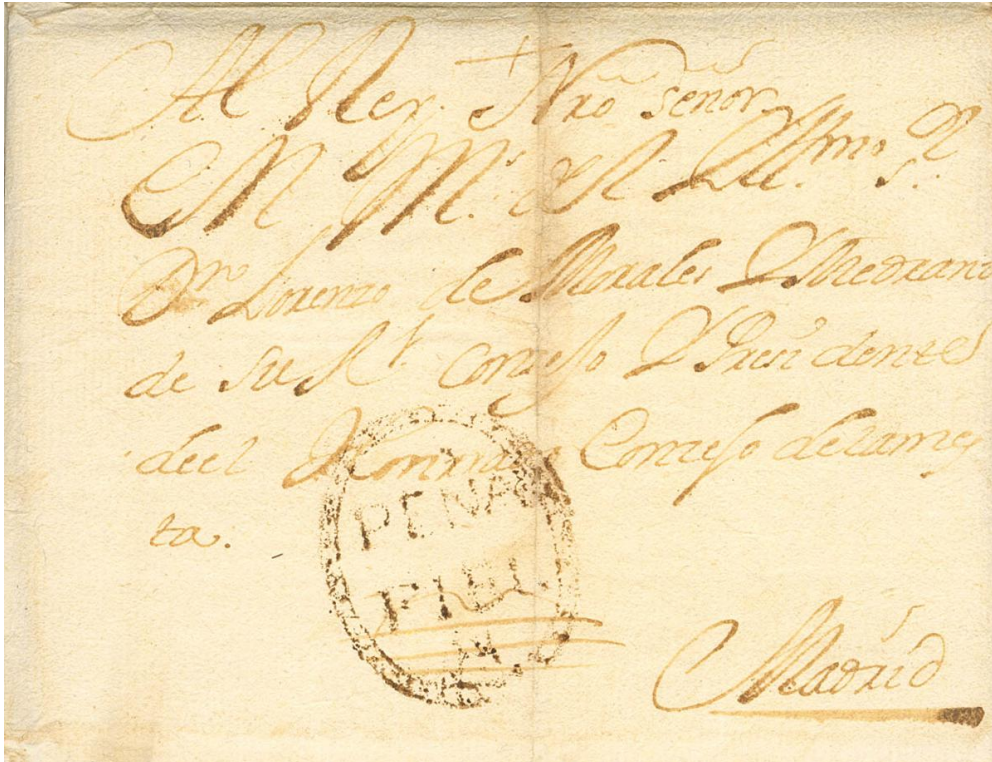 +
Al Rey Nrõ señor
M M.s
Yll.mo S.r
Dn Lorenzo de Morales Y Medrano
de su Rl. Consejo Y Presidente
de el Honrrado Consejo de la mes
ta.
PEÑA
FIEL
Madrid